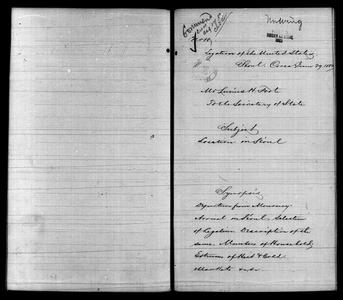 No 10
Legation of the United States
Seoul Corea June 29, 188
Mr Lucius H. Foote
To the Secretary of State
Subject
Location in Seoul
Synopsis
Departure from
Arrival in Seoul. Selection
of Legation. Description of the
same. Members of Household.
Extremes of Heat & Cold.
Markets &c